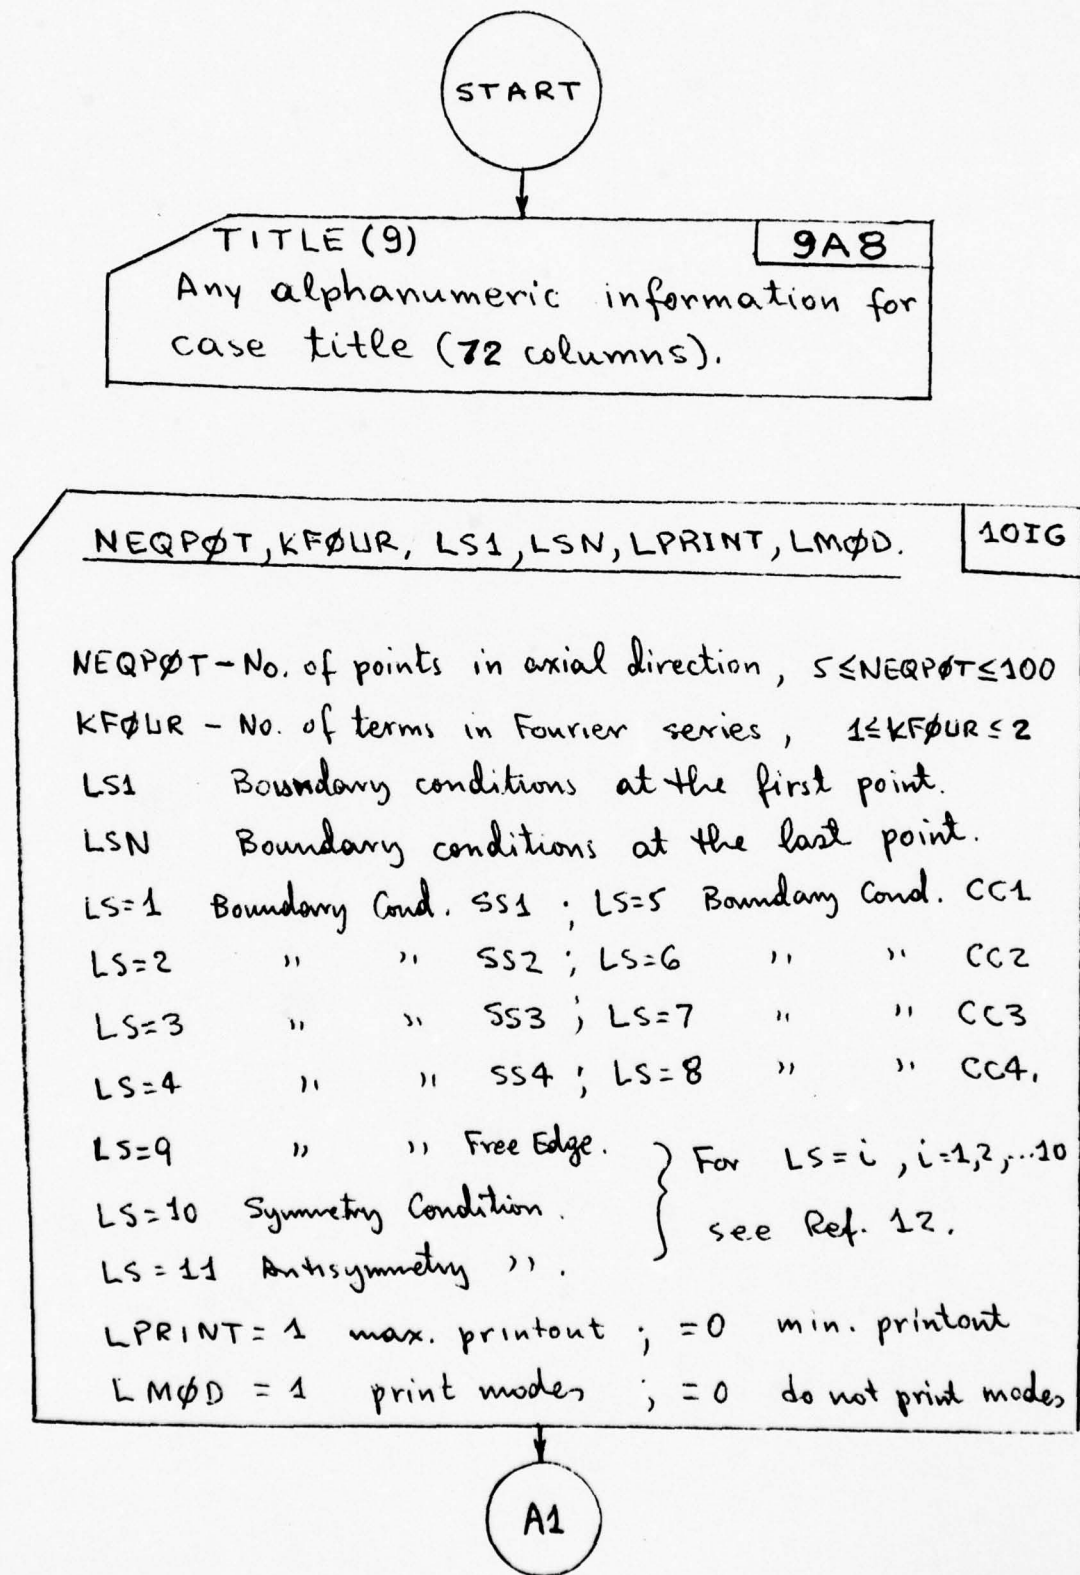 START
TITLE (9) 9A8
Any alphanumeric information for
case title (72 columns).
NEQPØT, KFØUR, LS1, LSN, LPRINT, LMØD. 10I6
NEQPØT - No. of points in axial direction, 5≤NEQPØT≤100
KFØUR - No. of terms in Fourier series, 1≤KFØUR≤2
LS1 Boundary conditions at the first point.
LSN Boundary conditions at the last point.
LS=1 Boundary Cond. SS1 ; LS=5 Boundary Cond. CC1
LS=2 " " SS2 ; LS=6 " " CC2
LS=3 " " SS3 ; LS=7 " " CC3
LS=4 " " SS4 ; LS=8 " " CC4.
LS=9 " " Free Edge. } For LS=i, i=1,2,...10
LS=10 Symmetry Condition. see Ref. 12.
LS=11 Antisymmetry ".
LPRINT=1 max. printout ; =0 min. printout
LMØD =1 print modes ; =0 do not print modes
A1